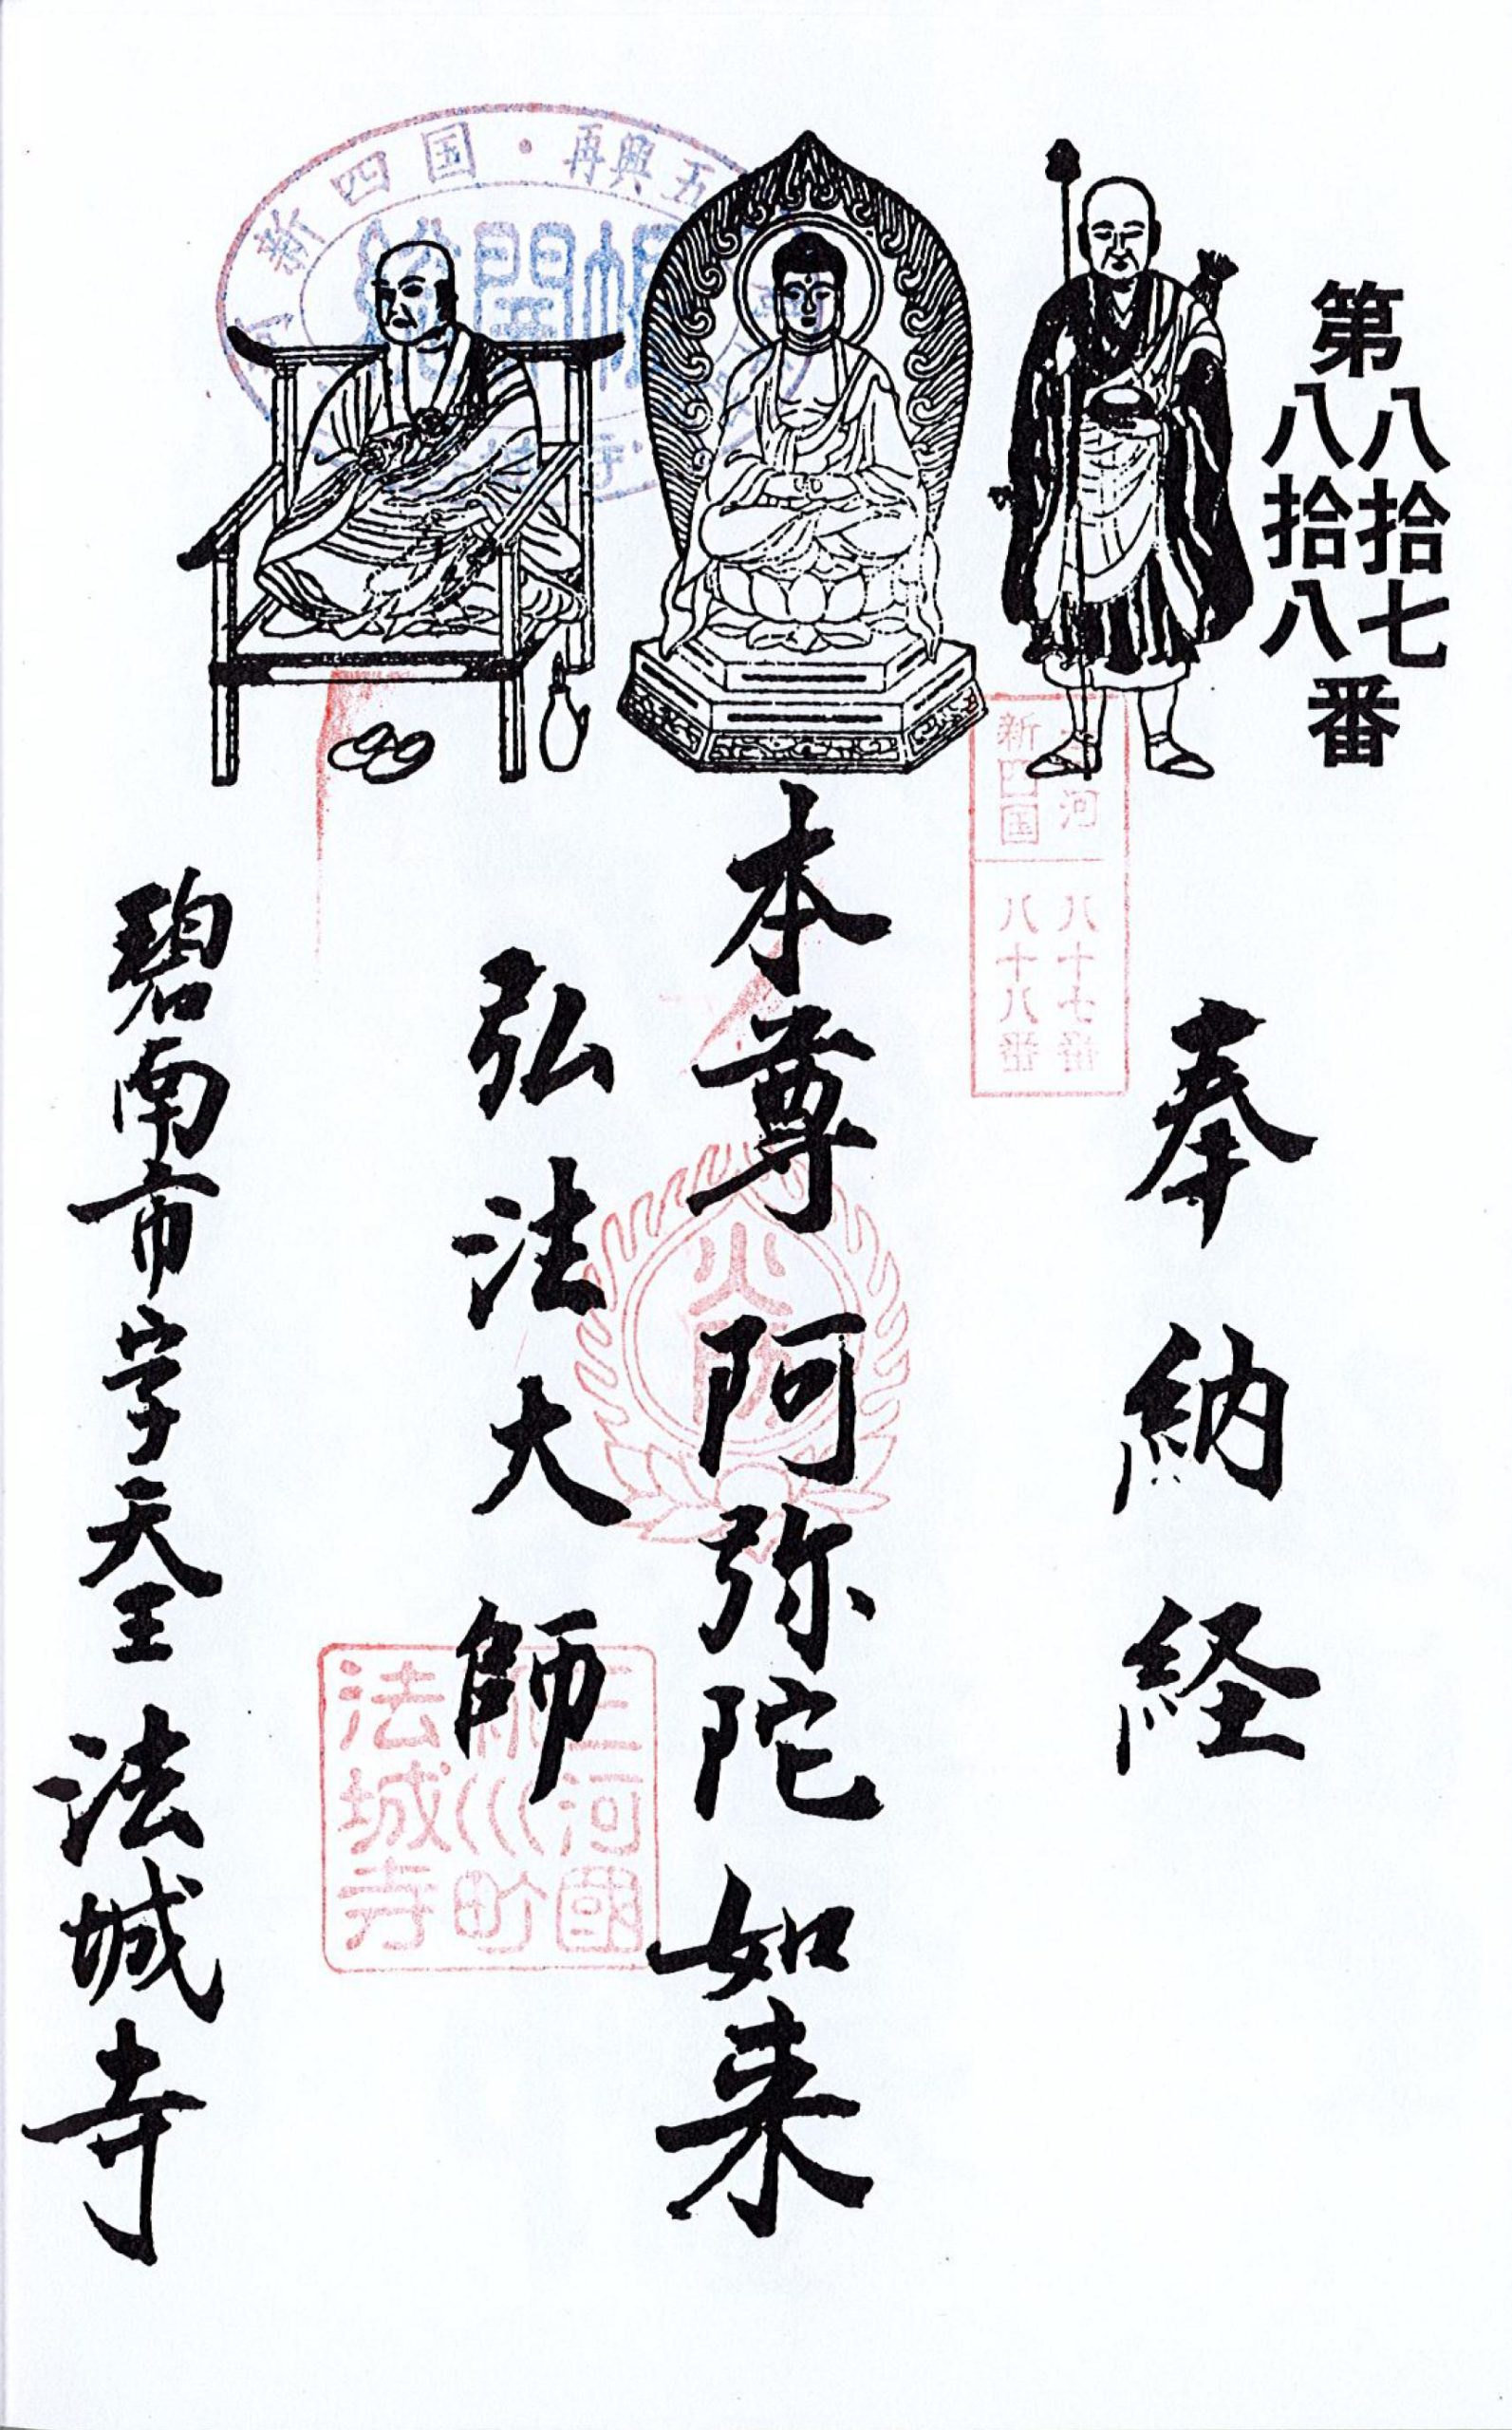 第八拾七八拾八番
奉納経
本尊阿弥陀如来
弘法大師
碧南市字天王 法城寺
新四国・再興五
御開帳
河
新四国
八十七番
八十八番
火防
三河國
川町
法城寺